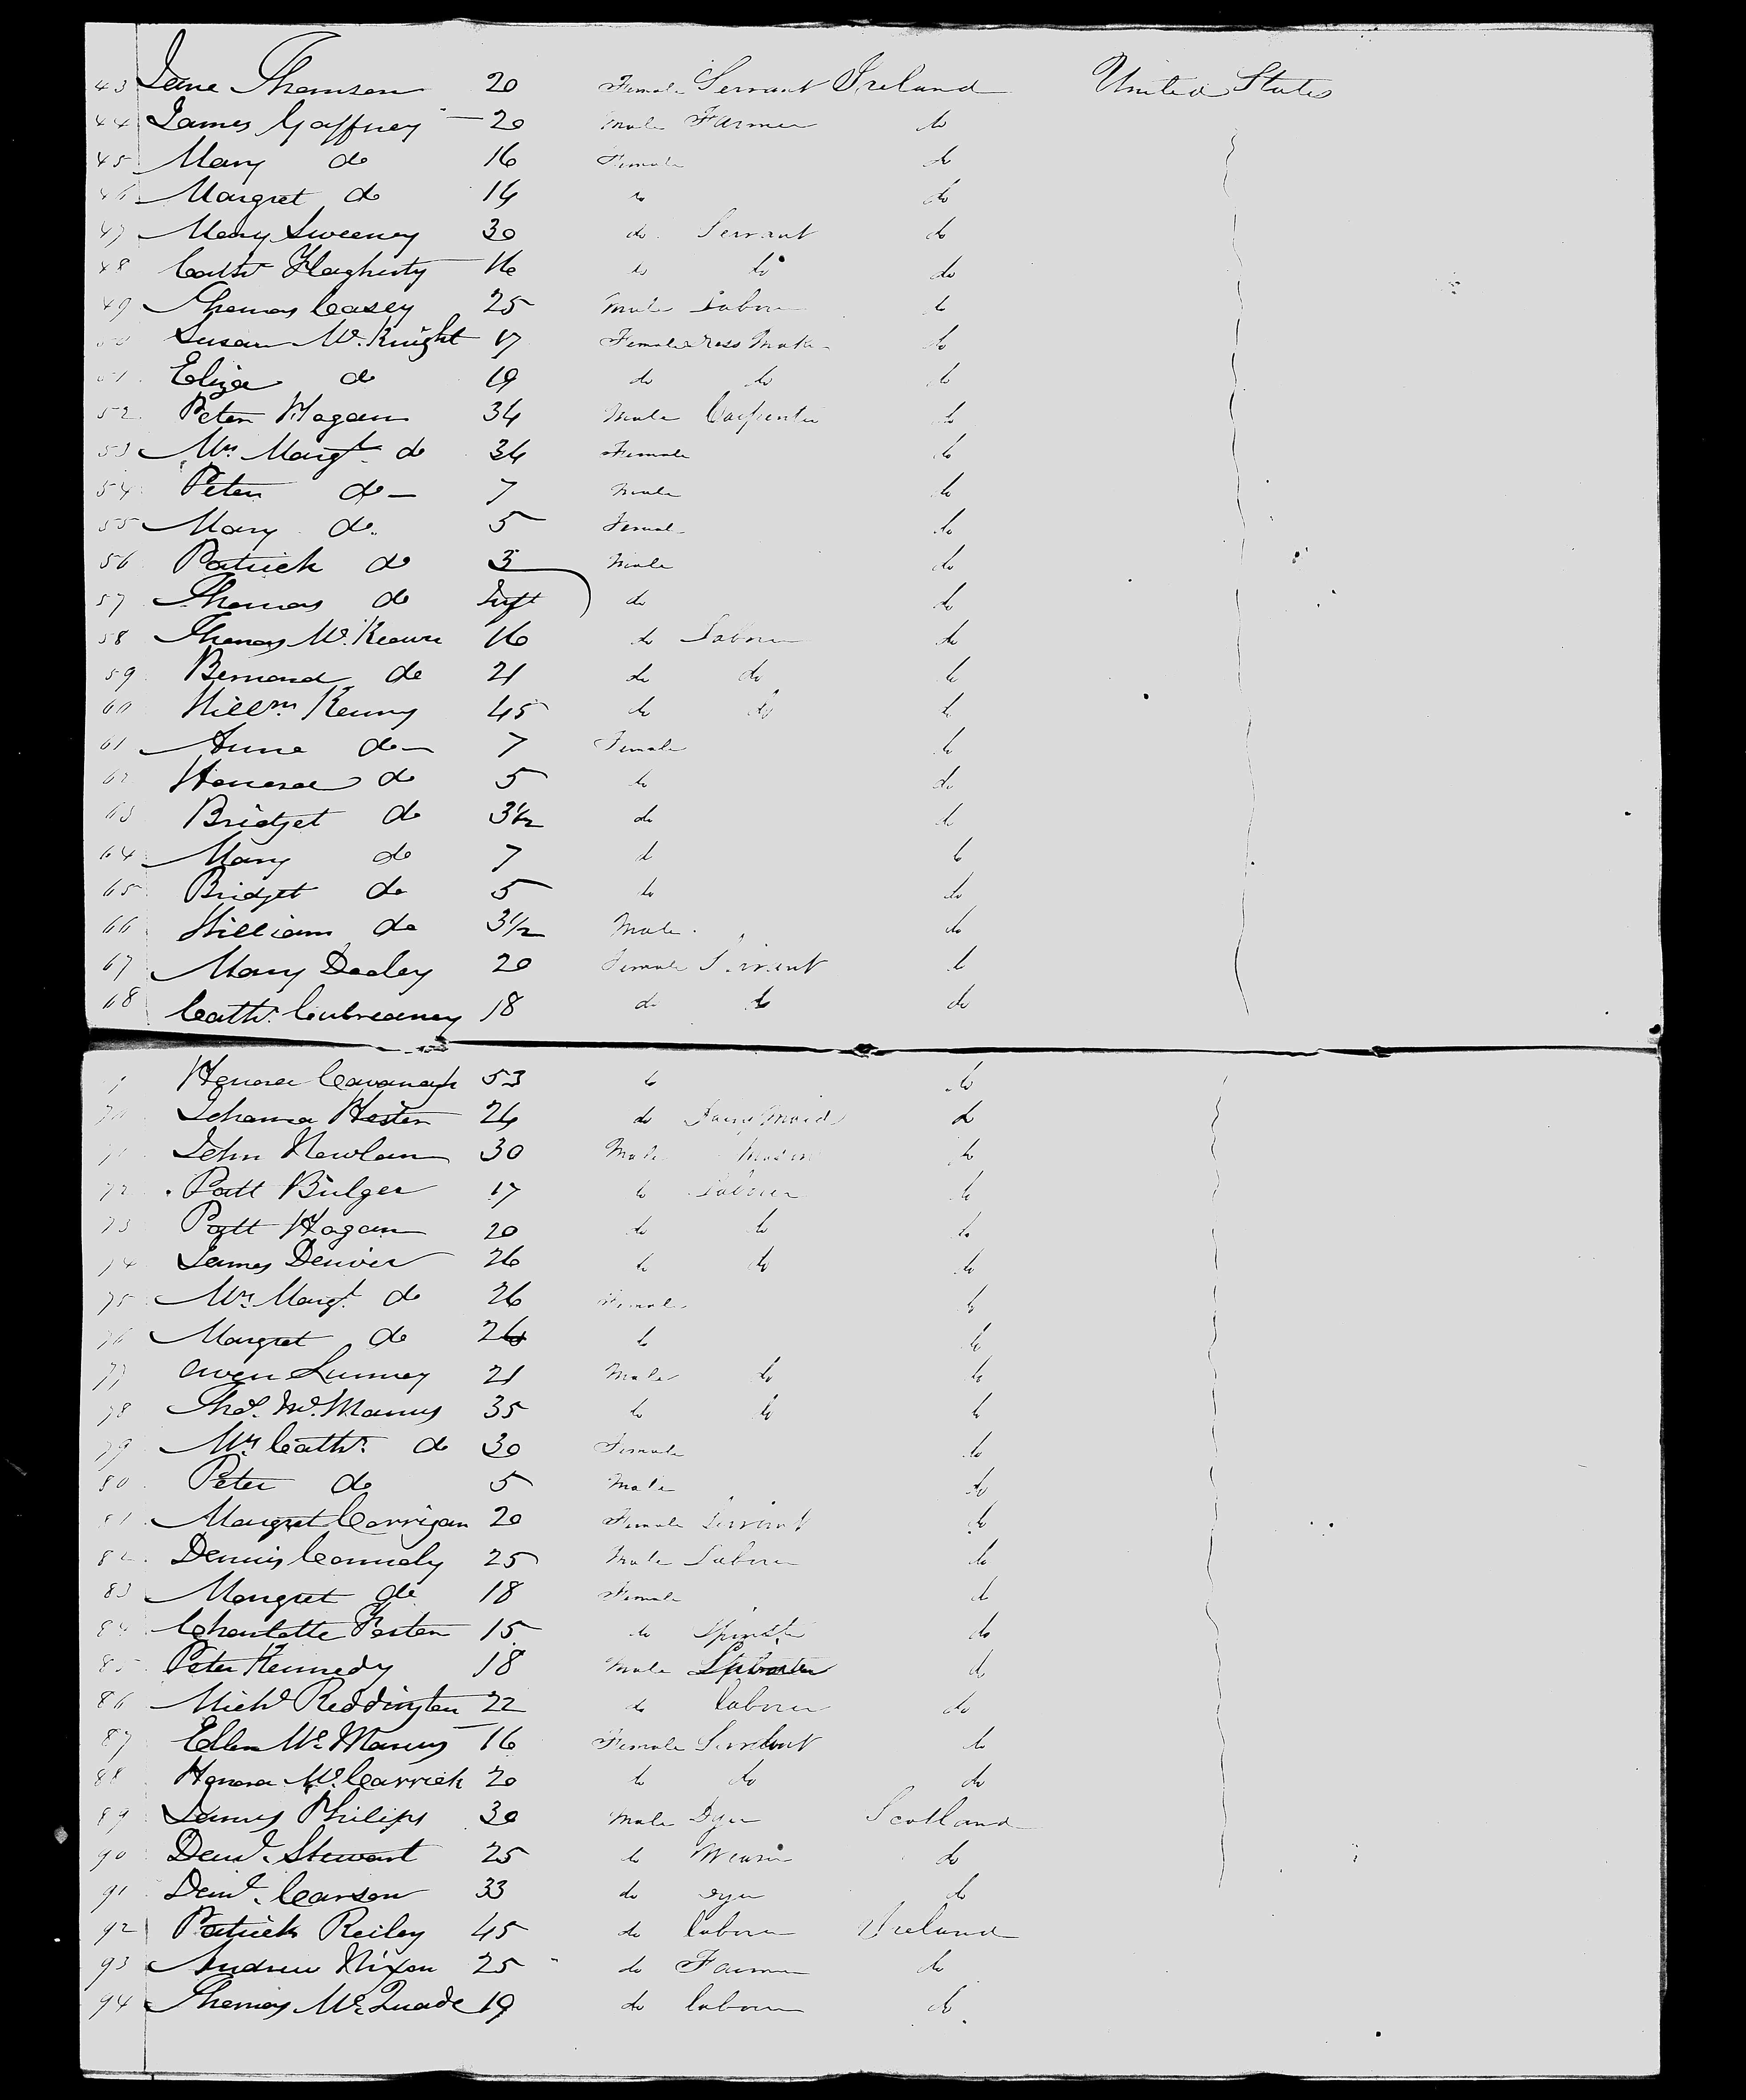 43 Jane Thomson 20 Female Servant Ireland United States
44 James Gaffney 20 Male Farmer do
45 Mary do 16 Female do
46 Margret do 14 do do
47 Mary Sweeney 30 do Servant do
48 Cathe Flagherty 16 do do do
49 Thomas Casey 25 Male Labour do
50 Susan Mc Knight 17 Female Dress Maker do
51 Eliza do 19 do do do
52 Peter Hagan 34 Male Carpenter do
53 Mrs Margt do 34 Female do
54 Peter do 7 Male do
55 Mary do 5 Female do
56 Patrick do 3 Male do
57 Thomas do Inft do do
58 Thomas Mc Keown 16 do Labour do
59 Bernard do 21 do do do
60 Willm Kenny 45 do do do
61 Anne do 7 Female do
62 Honora do 5 do do
63 Bridget do 3½ do do
64 Mary do 7 do do
65 Bridget do 5 do do
66 William do 3½ Male do
67 Mary Dooley 20 Female Servant do
68 Cathe 18 do do do
Honora Cavanagh 53 do do
70 Johanna 24 do Dairy Maid do
71 John Nowlan 30 Male Mason do
72 Patt Bulger 17 do Labour do
73 Patt Hagan 20 do do do
74 James Denvir 26 do do do
75 Mrs Margt do 26 Female do
76 Margret do do do
77 Owen Lunney 21 Male do do
78 Thos Mc Manus 35 do do do
79 Mrs Cathe do 30 Female do
80 Peter do 5 Male do
81 Margret Corrigan 20 Female Servant do
82 Dennis Connoly 25 Male Labour do
83 Margret do 18 Female do
84 Charlotte 15 do Spinster do
85 Peter Kennedy 18 Male do
86 Michl Reddington 22 do labour do
87 Ellen Mc Manus 16 Female Servant do
88 Honora Mc Carrick 20 do do do
89 James Philips 30 Male Dyer Scotland
90 Stewart 25 do Weaver do
91 Carson 33 do Dyer do
92 Patrick Reiley 45 do labour Ireland
93 Andrew Nixon 25 do Farmer do
94 Thomas Mc Quade 19 do labour do